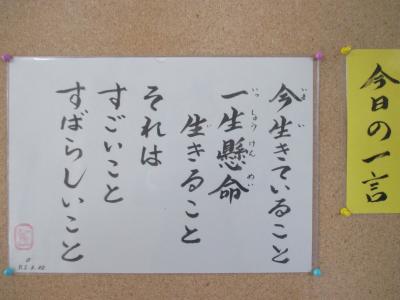 今日の一言
今生きていること
一生懸命
生きること
それは
すごいこと
すばらしいこと